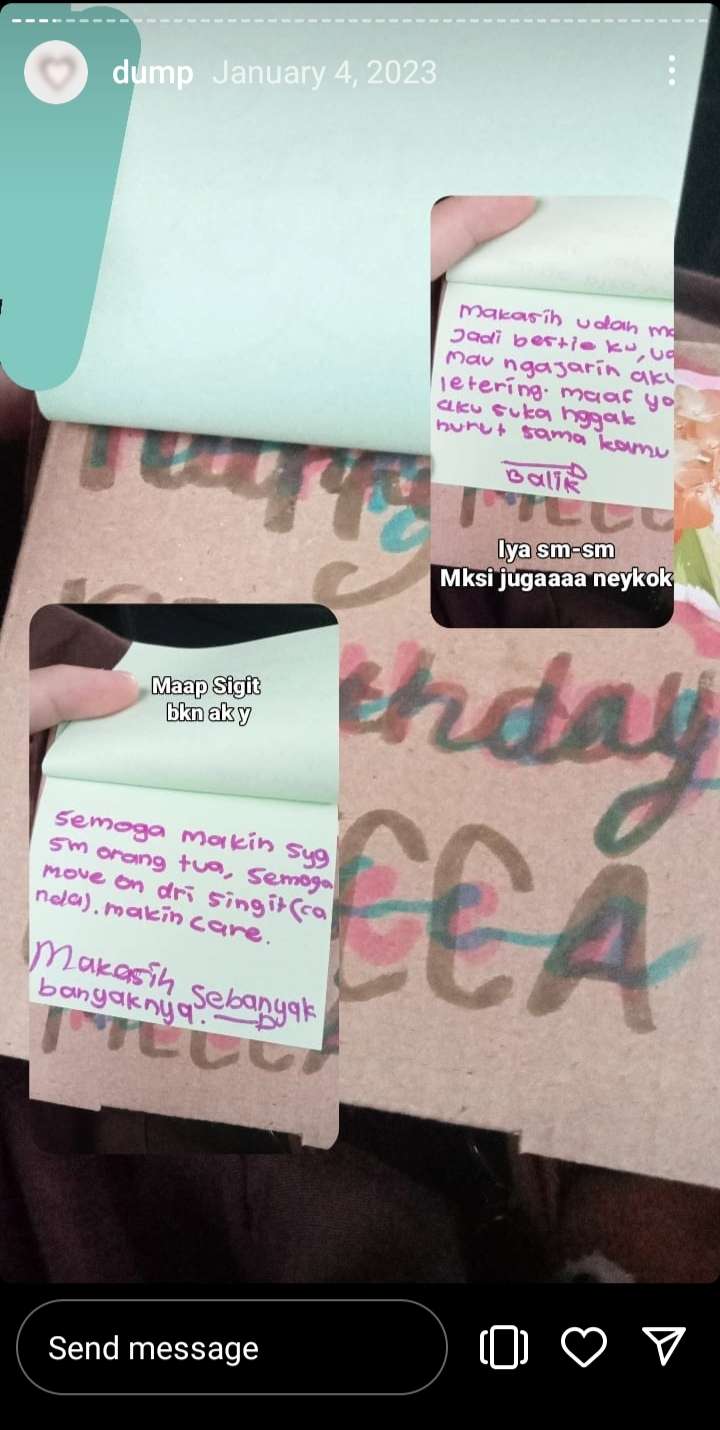 dump January 4, 2023
makasih udah
Jadi bestie ku,
mau ngajarin aku
letering. maaf ya
aku suka nggak
nurut sama kamu
Balik
Iya sm-sm
Mksi jugaaaa neykok
Happy
thday
CCA
Maap Sigit
bkn ak y
semoga makin syg
sm orang tua, semoga
move on dri singit(ca
nda). makin care.
Makasih sebanyak
banyaknya.
Send message